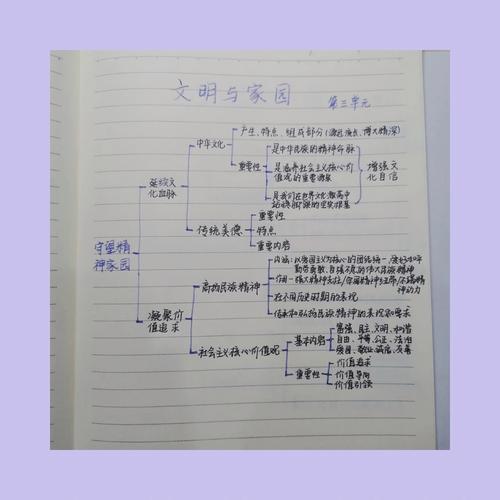 文明与家园
第三单元
产生、特点、组成部分(源远流长、博大精深)
中华文化
是中华民族的精神命脉
重要性
是涵养社会主义核心价
值观的重要源泉
增强文
化自信
延续文
化血脉
是我们在世界文化激荡中
站稳脚跟的坚实根基
重要性
传统美德
特点
重要内容
守望精
神家园
内涵:以爱国主义为核心的团结统一、爱好和平
勤劳勇敢、自强不息的伟大民族精神
高扬民族精神
作用
精神支柱/
精神纽带/
精神动力
在不同历史时期的表现
凝聚价
值追求
传承和弘扬民族精神的表现和要求
富强、民主、文明、和谐
基本内容
自由、平等、公正、法治
爱国、敬业、诚信、友善
社会主义核心价值观
价值追求
重要性
价值导向
价值引领